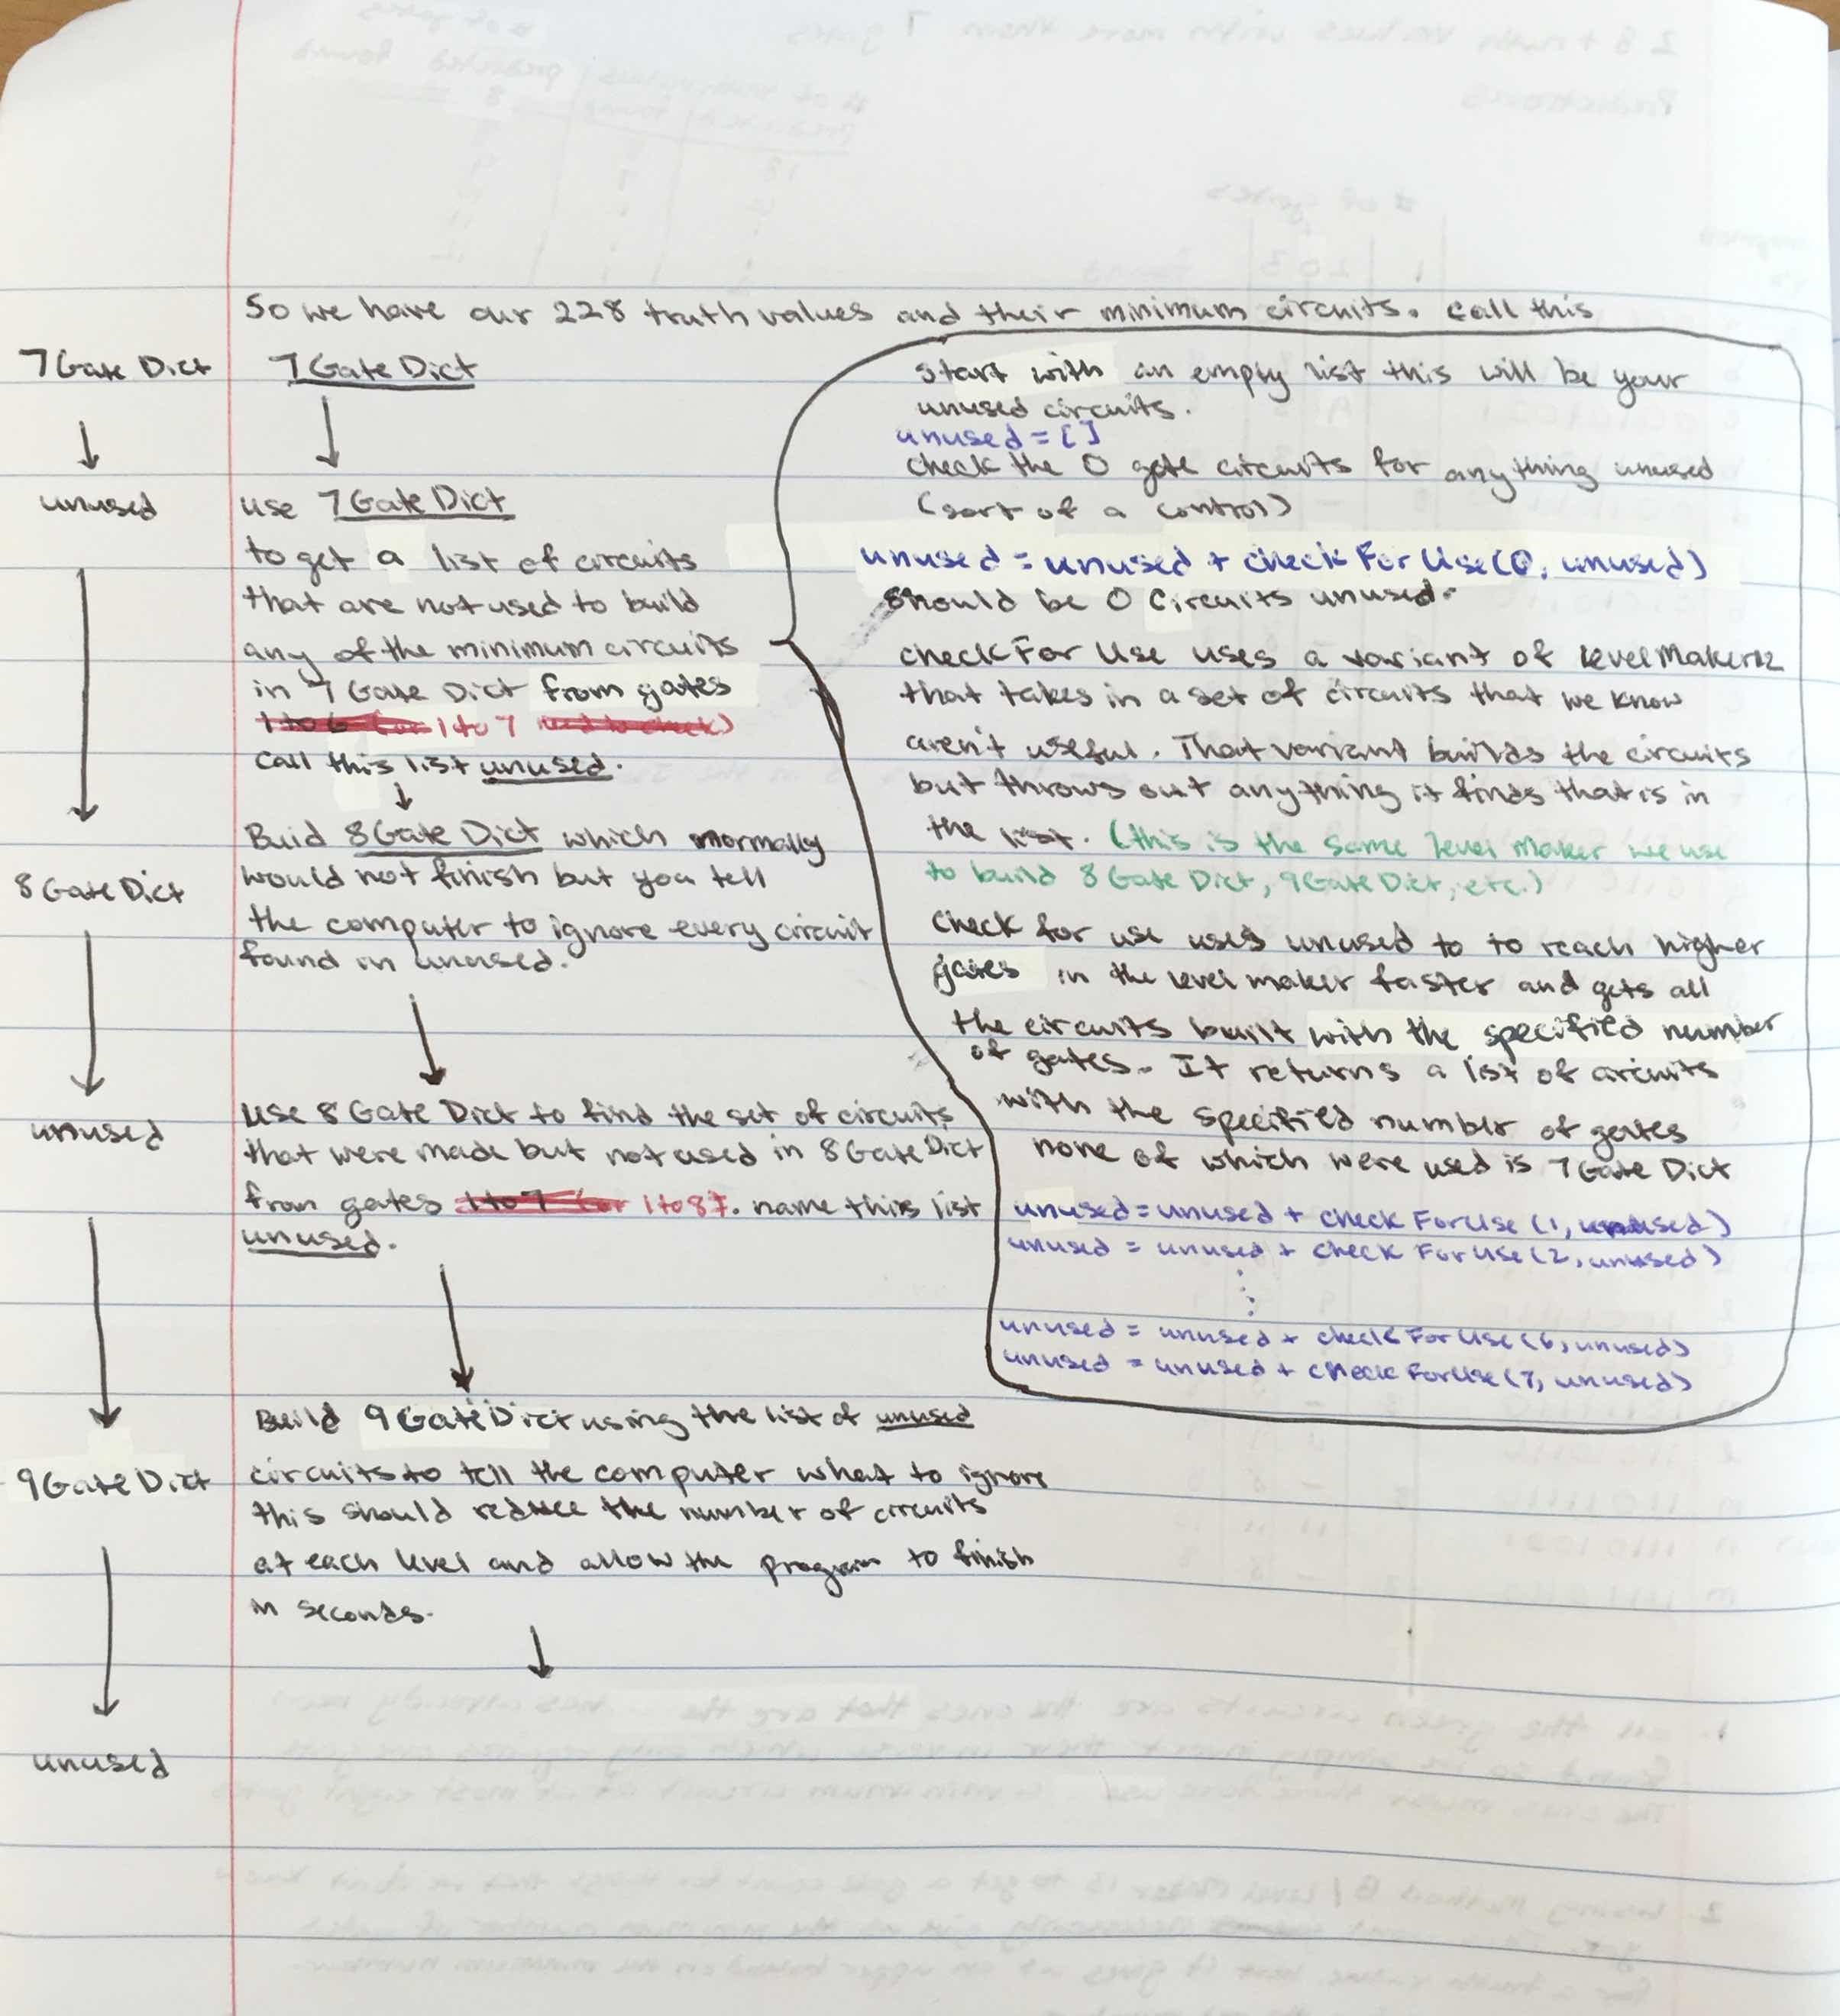 So we have our 228 truth values and their minimum circuits. Call this
7 Gate Dict
7 Gate Dict
unused
use 7 Gate Dict
to get a list of circuits
that are not used to build
any of the minimum circuits
in 7 Gate Dict from gates
1 to 6 (or 1 to 7 need to check)
call this list unused.
8 Gate Dict
Buid 8 Gate Dict which normally
would not finish but you tell
the computer to ignore every circuit
found in unused.
unused
use 8 Gate Dict to find the set of circuits
that were made but not used in 8 Gate Dict
from gates 1 to 7 (or 1 to 8?. name this list
unused.
9 Gate Dict
Build 9 Gate Dict using the list of unused
circuits to tell the computer what to ignore
this should reduce the number of circuits
at each level and allow the program to finish
in seconds.
unused
start with an empty list this will be your
unused circuits.
unused = [ ]
check the 0 gate circuits for anything unused
(sort of a control)
unused = unused + check For Use (0, unused)
should be 0 circuits unused.
check For Use uses a variant of level Maker
that takes in a set of circuits that we know
aren't useful. That variant builds the circuits
but throws out anything it finds that is in
the list. (this is the same level maker we use
to build 8 Gate Dict, 9 Gate Dict, etc.)
Check for use uses unused to to reach higher
gates in the level maker faster and gets all
the circuits built with the specified number
of gates. It returns a list of circuits
with the specified number of gates
none of which were used is 7 Gate Dict
unused = unused + check For Use (1, unused)
unused = unused + check For Use (2, unused)
unused = unused + check For Use (6, unused)
unused = unused + check For Use (7, unused)